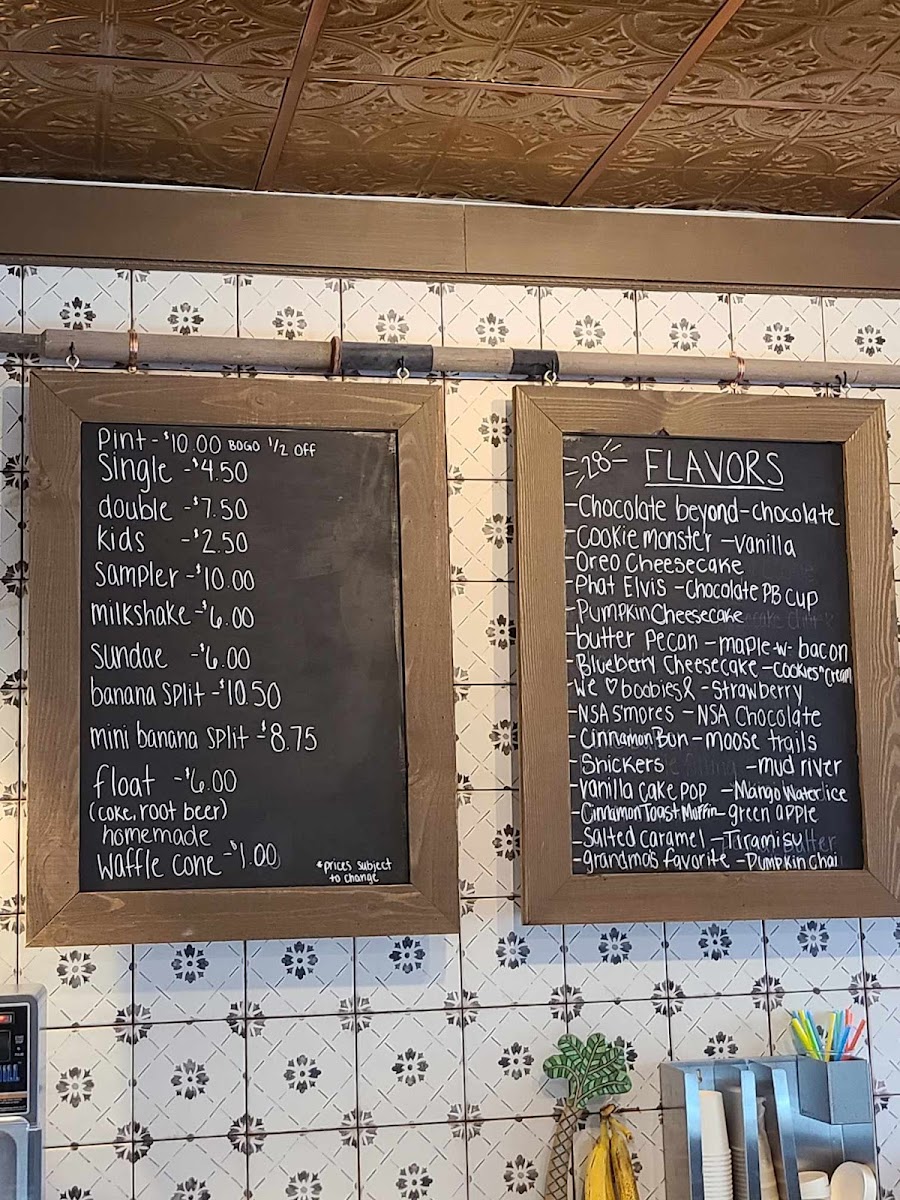 Pint - $10.00 BOGO 1/2 OFF
Single - $4.50
double - $7.50
kids - $2.50
Sampler - $10.00
milkshake - $6.00
Sundae - $6.00
banana split - $10.50
mini banana split - $8.75
float - $6.00
(coke, root beer)
homemade
waffle cone - $1.00
*prices subject
to change
28 FLAVORS
- Chocolate beyond - chocolate
- Cookie monster - vanilla
- Oreo Cheesecake
- Phat Elvis - Chocolate PB cup
- Pumpkin Cheesecake
- butter pecan - maple-w-bacon
- Blueberry Cheesecake - cookies n cream
- We ♡ boobies - strawberry
- NSA S'mores - NSA Chocolate
- Cinnamon Bun - moose trails
- Snickers - mud river
- vanilla cake pop - Mango Water ice
- Cinnamon Toast Muffin - green apple
- Salted caramel - Tiramisu
- grandmas favorite - Pumpkin Chai